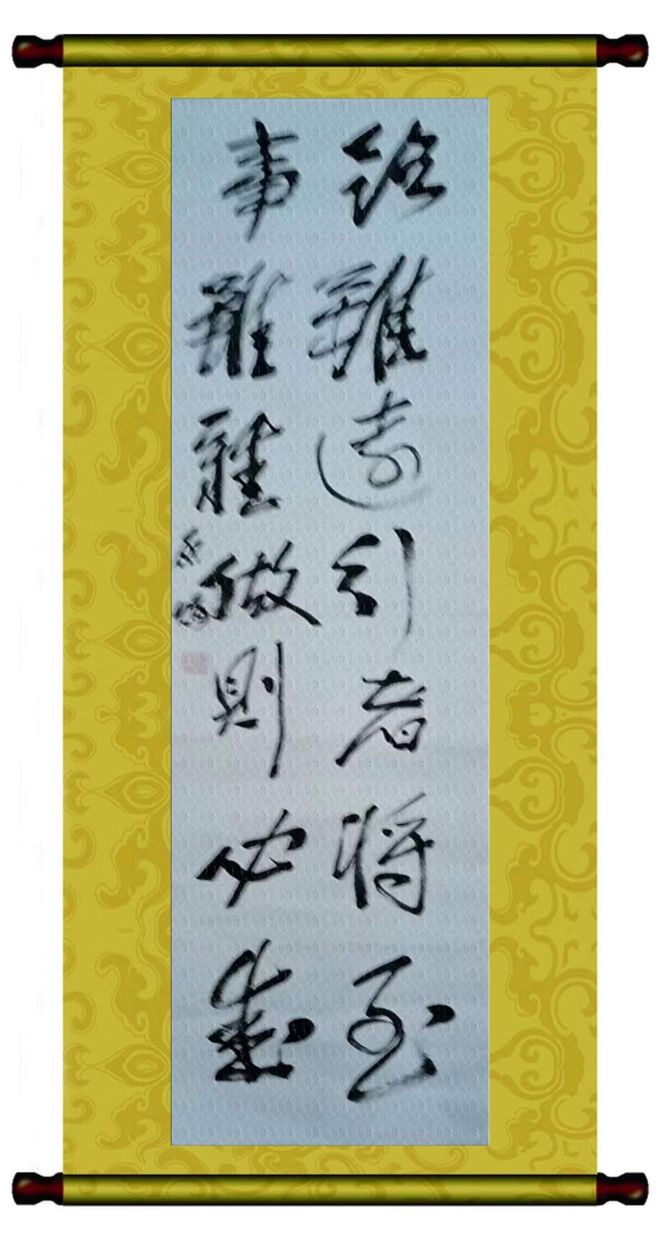 路雖遠行者将至
事雖難做則必成